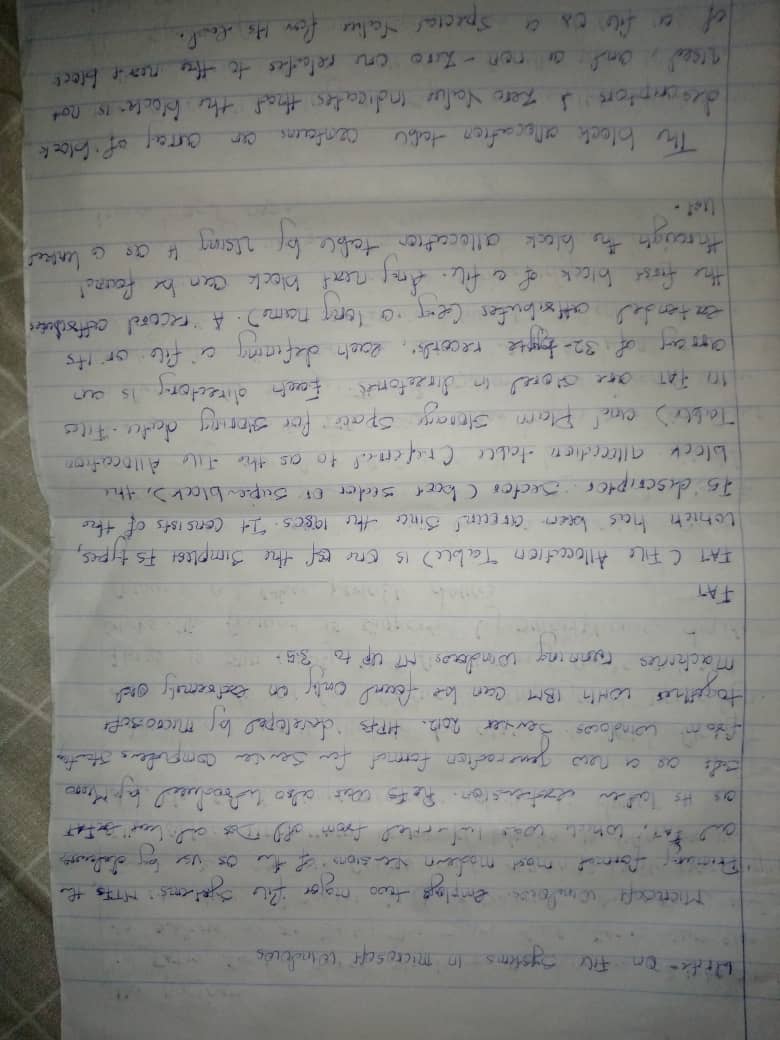 Write-on File Systems in Microsoft Windows
Microsoft Windows employs two major file systems: NTFS, the
Primary format most modern version of the os use by default,
and FAT, which was inherited from old Dos and has exFAT
as its later extension. Refs was also introduced by Micro
Soft as a new generation format for Server Computers starting
from Windows Server 2012. HPFS developed by Microsoft
together with IBM can be found only on extremely old
Machines running Windows NT up to 3.5.
FAT
FAT (File Allocation Table) is one of the simplest FS types,
which has been around since the 1980s. It consists of the
FS descriptor Sector (boot sector or superblock), the
block allocation table (referred to as the File Allocation
Table) and Plain Storage Space for storing data. Files
in FAT are stored in directories. Each directory is an
array of 32-byte records, each defining a file or its
extended attributes (e.g. a long name). A record attributes
the first block of a file. Any next block can be found
through the block allocation table by using it as a linked
list.
The block allocation table contains an array of block
descriptors. A Zero Value indicates that the block is not
used, and a non-Zero one relates to the next block
of a file or a special value for its end.